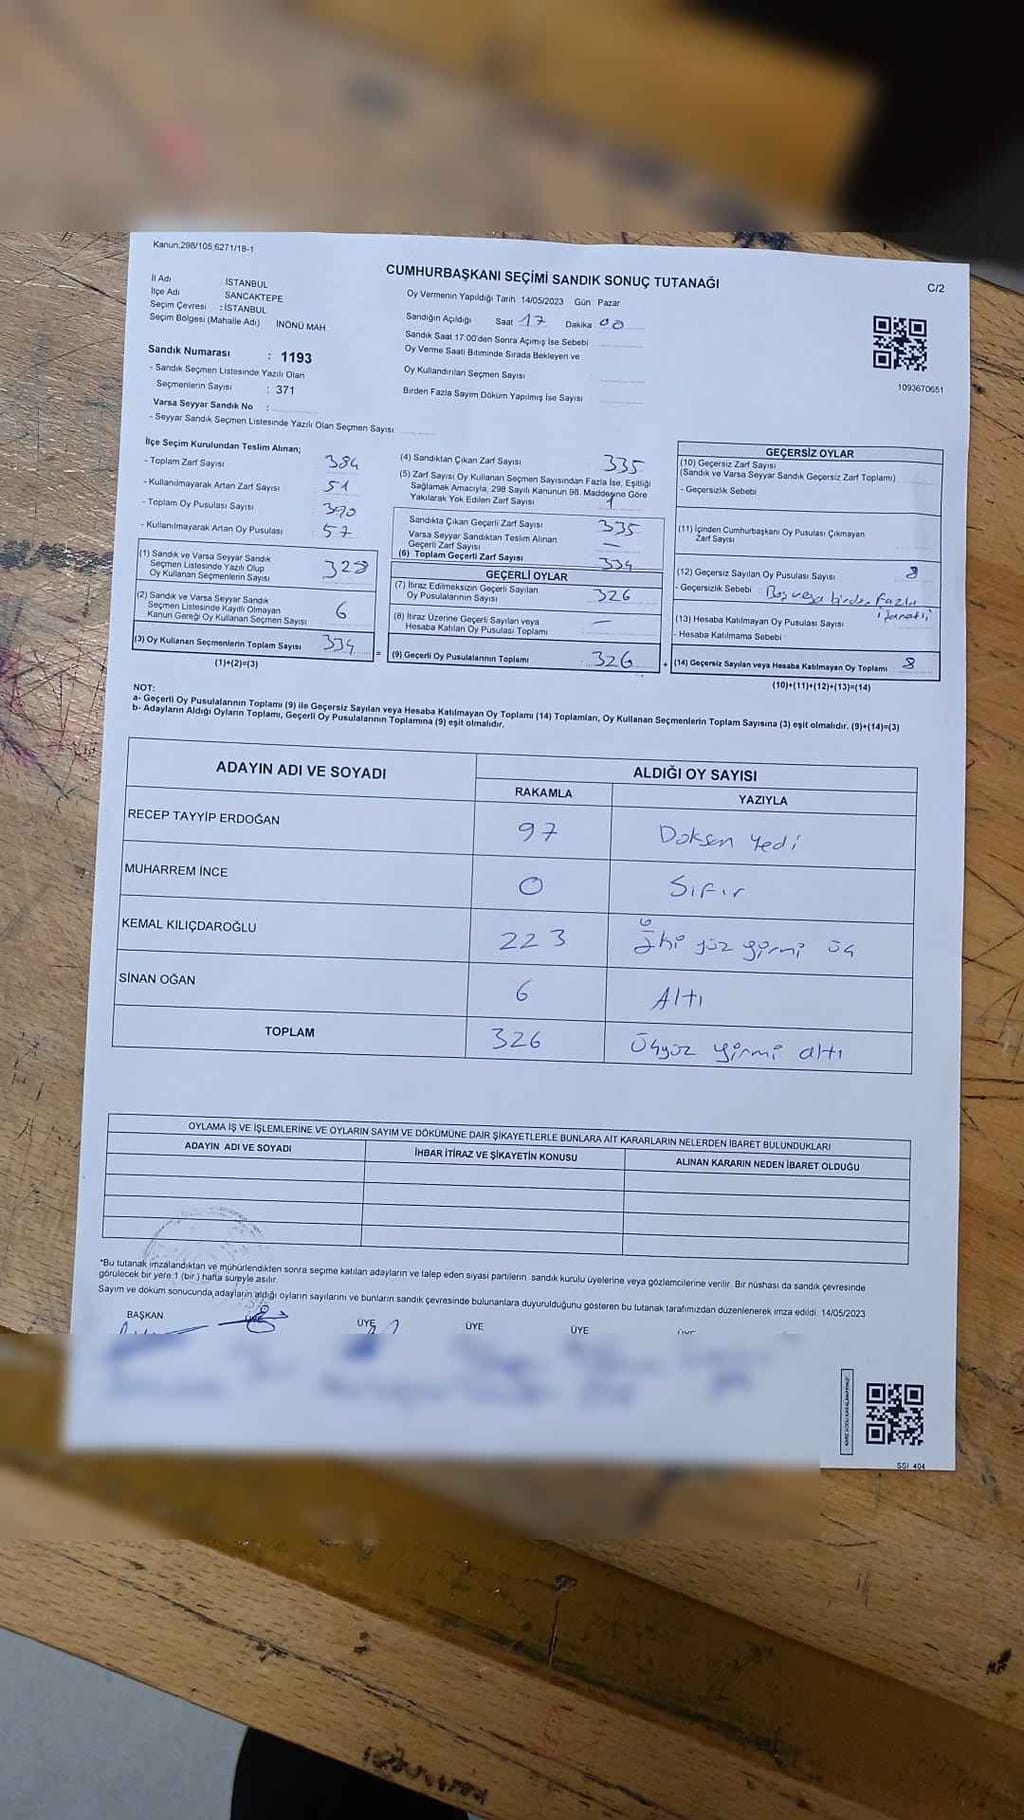 Kanun:298/105,6271/18-1
CUMHURBAŞKANI SEÇİMİ SANDIK SONUÇ TUTANAĞI
C/2
İl Adı İSTANBUL
İlçe Adı SANCAKTEPE
Seçim Çevresi : İSTANBUL
Seçim Bölgesi (Mahalle Adı) İNÖNÜ MAH
Sandık Numarası : 1193
- Sandık Seçmen Listesinde Yazılı Olan
Seçmenlerin Sayısı : 371
Varsa Seyyar Sandık No :
- Seyyar Sandık Seçmen Listesinde Yazılı Olan Seçmen Sayısı
Oy Vermenin Yapıldığı Tarih 14/05/2023 Gün Pazar
Sandığın Açıldığı Saat 17 Dakika 00
Sandık Saat 17:00'den Sonra Açımış İse Sebebi
Oy Verme Saati Bitiminde Sırada Bekleyen ve
Oy Kullandırılan Seçmen Sayısı
Birden Fazla Sayım Döküm Yapılmış İse Sayısı
1093670651
İlçe Seçim Kurulundan Teslim Alınan;
- Toplam Zarf Sayısı 384
- Kullanılmayarak Artan Zarf Sayısı 51
- Toplam Oy Pusulası Sayısı 390
- Kullanılmayarak Artan Oy Pusulası 57
(1) Sandık ve Varsa Seyyar Sandık
Seçmen Listesinde Yazılı Olup
Oy Kullanan Seçmenlerin Sayısı 328
(2) Sandık ve Varsa Seyyar Sandık
Seçmen Listesinde Kayıtlı Olmayan
Kanun Gereği Oy Kullanan Seçmen Sayısı 6
(3) Oy Kullanan Seçmenlerin Toplam Sayısı 334 =
(1)+(2)=(3)
(4) Sandıktan Çıkan Zarf Sayısı 335
(5) Zarf Sayısı Oy Kullanan Seçmen Sayısından Fazla İse, Eşitliği
Sağlamak Amacıyla, 298 Sayılı Kanunun 98. Maddesine Göre
Yakılarak Yok Edilen Zarf Sayısı 1
Sandıkta Çıkan Geçerli Zarf Sayısı 335
Varsa Seyyar Sandıktan Teslim Alınan
Geçerli Zarf Sayısı —
(6) Toplam Geçerli Zarf Sayısı 334
GEÇERLİ OYLAR
(7) İtiraz Edilmeksizin Geçerli Sayılan
Oy Pusulalarının Sayısı 326
(8) İtiraz Üzerine Geçerli Sayılan veya
Hesaba Katılan Oy Pusulası Toplamı —
(9) Geçerli Oy Pusulalarının Toplamı 326 +
GEÇERSİZ OYLAR
(10) Geçersiz Zarf Sayısı
(Sandık ve Varsa Seyyar Sandık Geçersiz Zarf Toplamı)
- Geçersizlik Sebebi
(11) İçinden Cumhurbaşkanı Oy Pusulası Çıkmayan
Zarf Sayısı
(12) Geçersiz Sayılan Oy Pusulası Sayısı 8
- Geçersizlik Sebebi Boş veya birden fazla
(13) Hesaba Katılmayan Oy Pusulası Sayısı
- Hesaba Katılmama Sebebi
(14) Geçersiz Sayılan veya Hesaba Katılmayan Oy Toplamı 8
(10)+(11)+(12)+(13)=(14)
NOT:
a- Geçerli Oy Pusulalarının Toplamı (9) ile Geçersiz Sayılan veya Hesaba Katılmayan Oy Toplamı (14) Toplamları, Oy Kullanan Seçmenlerin Toplam Sayısına (3) eşit olmalıdır. (9)+(14)=(3)
b- Adayların Aldığı Oyların Toplamı, Geçerli Oy Pusulalarının Toplamına (9) eşit olmalıdır.
ADAYIN ADI VE SOYADI ALDIĞI OY SAYISI
RAKAMLA YAZIYLA
RECEP TAYYİP ERDOĞAN 97 Doksan Yedi
MUHARREM İNCE 0 Sıfır
KEMAL KILIÇDAROĞLU 223 İki yüz yirmi üç
SİNAN OĞAN 6 Altı
TOPLAM 326 Üçyüz yirmi altı
OYLAMA İŞ VE İŞLEMLERİNE VE OYLARIN SAYIM VE DÖKÜMÜNE DAİR ŞİKAYETLERLE BUNLARA AİT KARARLARIN NELERDEN İBARET BULUNDUKLARI
ADAYIN ADI VE SOYADI İHBAR İTİRAZ VE ŞİKAYETİN KONUSU ALINAN KARARIN NEDEN İBARET OLDUĞU
*Bu tutanak imzalandıktan ve mühürlendikten sonra seçime katılan adayların ve talep eden siyasi partilerin sandık kurulu üyelerine veya gözlemcilerine verilir. Bir nüshası da sandık çevresinde
görülecek bir yere 1 (bir) hafta süreyle asılır.
Sayım ve döküm sonucunda adayların aldığı oyların sayılarını ve bunların sandık çevresinde bulunanlara duyurulduğunu gösteren bu tutanak tarafımızdan düzenlenerek imza edildi. 14/05/2023
BAŞKAN ÜYE ÜYE ÜYE ÜYE ÜYE
SSİ 404